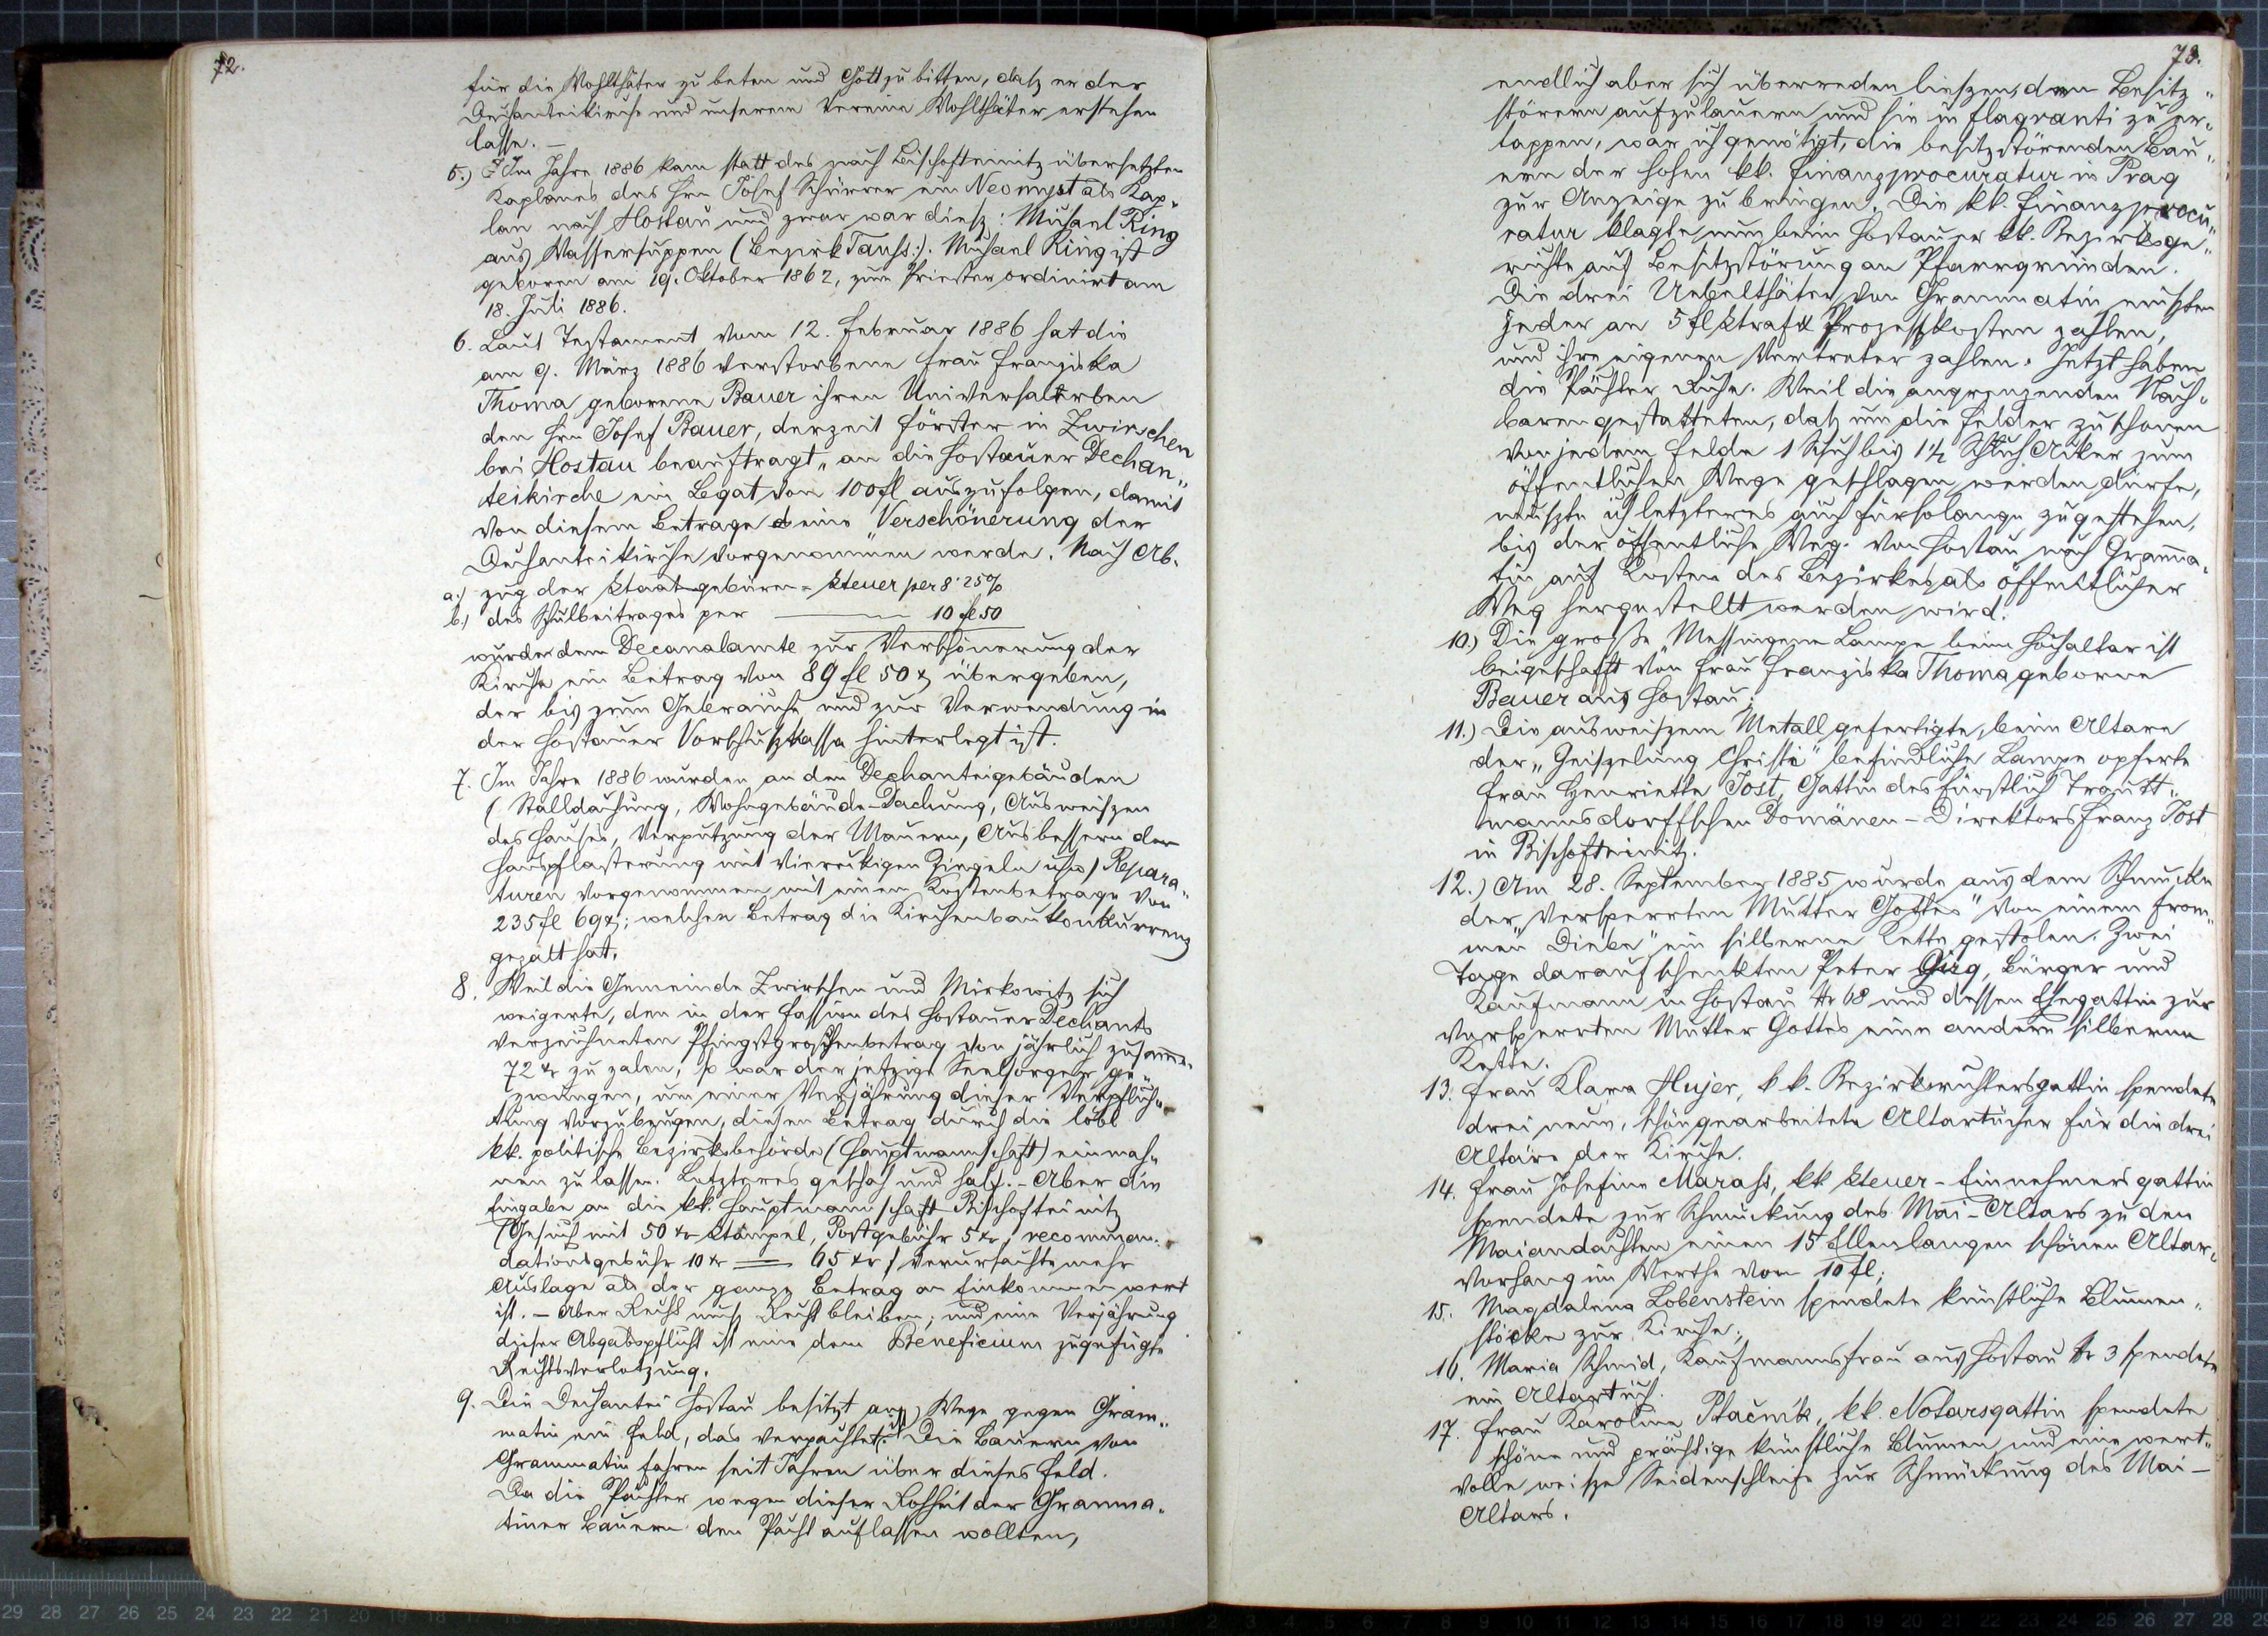 72.
für die Wohlthäter zu beten und Gott zu bitten, daß er der
Dechanteikirche und unserem Vereine Wohlthäter erstehen
lasse. –
5.) Im Jahre 1886 kam statt des nach Bischofteinitz übersetzten
Kaplanes des Hrn Josef Schürrer ein Neomyst als Kap„
lan nach Hostau und zwar war dieß: Michael Ring
aus Wassersuppen (Bezirk Tauss:). Michael Ring ist
geboren am 19. Oktober 1862, zum Priester ordinirt am
18. Juli 1886.
6. Laut Testament vom 12. Februar 1886 hat die
am 9. März 1886 verstorbene Frau Franziska
Thoma geborene Bauer ihren Universalerben
den Hrn Josef Bauer, derzeit Förster in Zwirschen
bei Hostau beauftragt „an die Hostauer Dechan„
teikirche ein Legat von 100 fl auszufolgen, damit
von diesem Betrage eine Verschönerung der
Dechanteikirche vorgenommen werde. Nach Ab„
a.) zug der Staatsgebüren-Steuer per 8·25%
b.) des Schulbeitrages per — 10 fl 50
wurde dem Decanalamte zur Verschönerung der
Kirche ein Betrag von 89 fl 50 x übergeben,
der bis zum Gebrauche und zur Verwendung in
der Hostauer Vorschußkassa hinterlegt ist.
7. Im Jahre 1886 wurden an den Dechanteigebäuden
(Stalldachung, Wohngebäude-Dachung, Ausweißen
des Hauses, Verputzung der Mauern, Ausbessern der
Hauspflasterung mit viereckigen Ziegeln usw) Repara„
turen vorgenommen mit einem Kostenbetrage von
235 fl 69 x; welchen Betrag die Kirchenbaukonkurrenz
gezalt hat.
8. Weil die Gemeinde Zwirschen und Mirkowitz sich
weigerte, den in der Fassion des Hostauer Dechants
verzeichneten Pfingstgroschenbetrag von jährlich zusamm.
72 kr zu zalen, so war der jetzige Seelsorger ge„
zwungen, um einer Verjährung dieser Verpflich„
tung vorzubeugen, diesen Betrag durch die löbl
kk. politische Bezirksbehörde (Hauptmannschaft) einmah„
nen zu lassen. Letzteres geschah und half. – Aber die
Eingabe an die kk. Hauptmannschaft Bischofteinitz
(Gesuch mit 50 kr Stämpel, Postgebühr 5 kr, recomman„
dationsgebühr 10 kr = 65 kr) verursachte mehr
Auslage als der ganze Betrag an Einkommen wert
ist. – Aber Recht muß Recht bleiben; und eine Verjährung
dieser Abgabspflicht ist eine dem Beneficium zugefügte
Rechtsverletzung.
9. Die Dechantei Hostau besitzt am Wege gegen Gram„
matin ein Feld, das verpachtet ist. Die Bauern von
Grammatin fahren seit Jahren über dieses Feld.
Da die Pächter wegen dieser Rohheit der Gramma„
tiner Bauern den Pacht auflassen wollten,
73.
endlich aber sich überreden ließen, den Besitz„
störern aufzulauern und sie in flagranti zu er„
tappen, war ich genötigt, die besitzstörenden Bau„
ern der hohen kk. Finanzprocuratur in Prag
zur Anzeige zu bringen. Die kk. Finanzprocu„
ratur klagte nun beim Hostauer kk. Bezirksge„
richte auf Besitzstörung an Pfarrgründen.
Die drei Uebelthäter von Grammatin mußten
jeder an 5 fl Straf & Prozeßkosten zahlen,
und ihre eigenen Vertreter zahlen. Jetzt haben
die Pächter Ruhe. Weil die angrenzenden Nach„
baren gestatteten, daß um die Felder zu schonen
von jedem Felde 1 Schuh bis 1½ Schuh Acker zum
öffentlichen Wege geschlagen werden dürfe,
mußte ich letzteres auch fürsolange zugestehen,
bis der öffentliche Weg von Hostau nach Gramma„
tin auf Kosten des Bezirkes als öffentlicher
Weg hergestellt werden wird.
10.) Die große Messingene Lampe beim Hochaltar ist
beigeschafft von Frau Franziska Thoma geborne
Bauer aus Hostau;
11.) Die aus weißem Metall gefertigte, beim Altare
der „Geißelung Christi" befindliche Lampe opferte
Frau Henriette Jost, Gattin des Fürstlich Trautt„
mannsdorffschen Domänen-Direktors Franz Jost
in Bischofteinitz.
12.) Am 28. September 1885 wurde aus dem Schmucke
der „versperrten Mutter Gottes" von einem from„
men „Diebe" ein silberne Kette gestolen. Zwei
Tage darauf schenkten Peter Girg, Bürger und
Kaufmann in Hostau Nr 68 und dessen Ehegattin zur
versperrten Mutter Gottes eine andere silberne
Kette.
13. Frau Klara Hujer, kk. Bezirksrichtersgattin spendete
drei neue, schöngearbeitete Altartücher für die drei
Altäre der Kirche.
14. Frau Josefine Marass, kk Steuer-Einnehmersgattin
spendete zur Schmückung des Mai-Altars zu den
Maiandachten einen 15 Ellenlangen schönen Altar„
vorhang im Werthe von 10 fl;
15. Magdalena Lobenstein spendete künstliche Blumen„
stöcke zur Kirche;
16. Maria Schmid, Kaufmannsfrau aus Hostau Nr 3 spendete
ein Altartuch.
17. Frau Karoline Ptačnik, kk. Notarsgattin spendete
schöne und prächtige künstliche Blumen und eine wert„
volle weiße Seidenschleife zur Schmückung des Mai-
Altars.